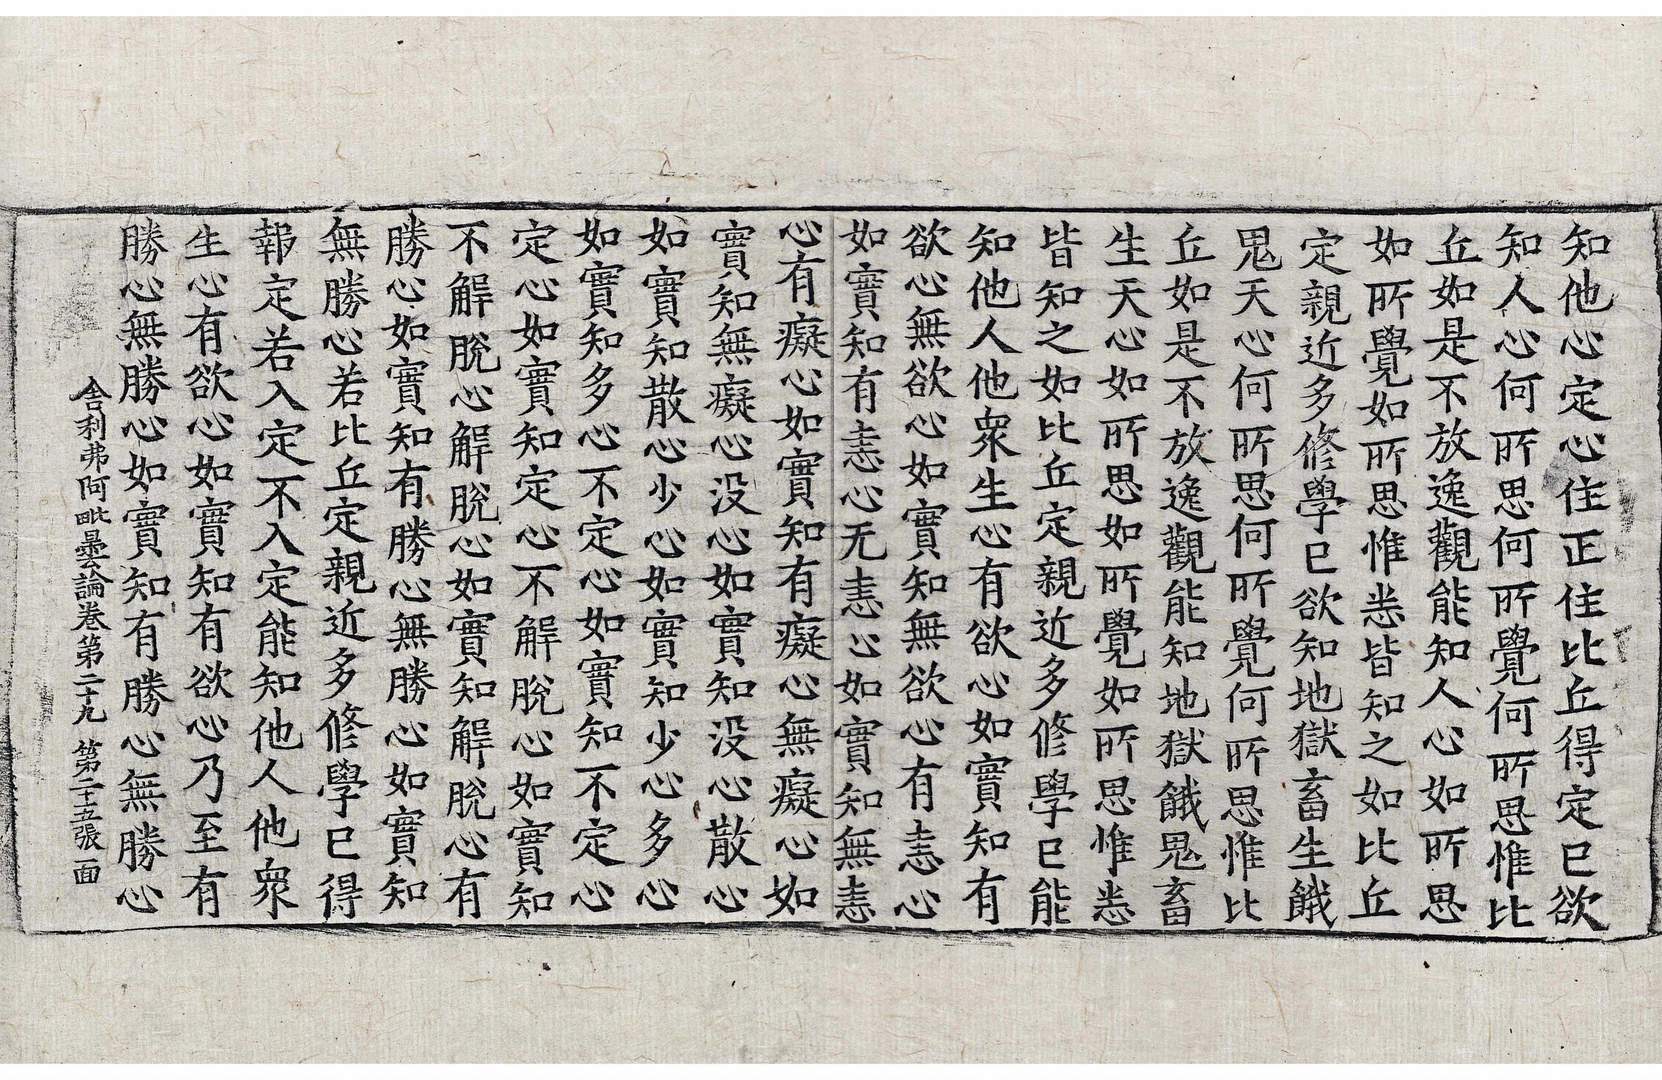 知他心定心住正住比丘得定已欲
知人心何所思何所覺何所思惟比
丘如是不放逸觀能知人心如所思
如所覺如所思惟悉皆知之如比丘
定親近多修學已欲知地獄畜生餓
鬼天心何所思何所覺何所思惟比
丘如是不放逸觀能知地獄餓鬼畜
生天心如所思如所覺如所思惟悉
皆知之如比丘定親近多修學已能
知他人他衆生心有欲心如實知有
欲心無欲心如實知無欲心有恚心
如實知有恚心无恚心如實知無恚
心有癡心如實知有癡心無癡心如
實知無癡心没心如實知没心散心
如實知散心少心如實知少心多心
如實知多心不定心如實知不定心
定心如實知定心不解脫心如實知
不解脫心解脫心如實知解脫心有
勝心如實知有勝心無勝心如實知
無勝心若比丘定親近多修學已得
報定若入定不入定能知他人他衆
生心有欲心如實知有欲心乃至有
勝心無勝心如實知有勝心無勝心
舍利弗阿毗曇論卷第二十九 第二十五張 面